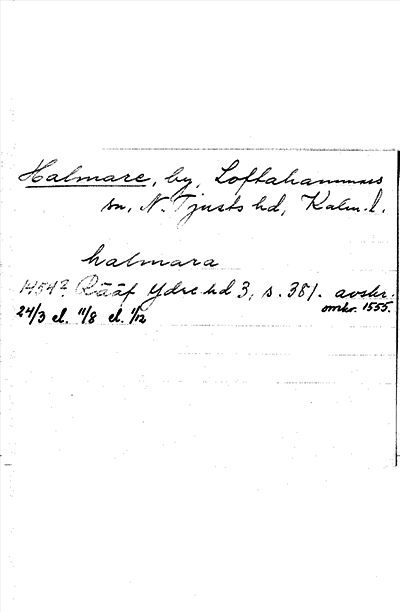 Halmare, by, Loftahammars
sn, N. Tjusts hd, Kalm. l.
halmara
1454? Rääf Ydre hd 3, s. 381. avskr.
24/3 el. 11/8 el. 1/12 omkr. 1555.